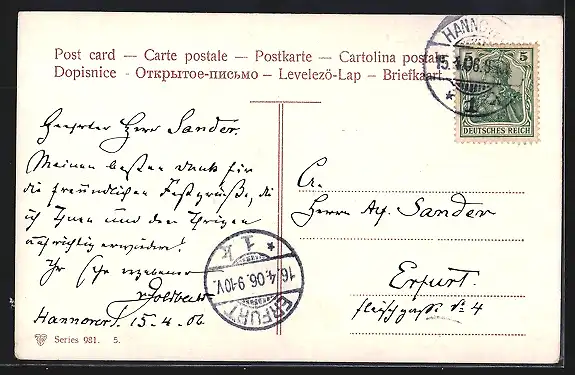 Post card — Carte postale — Postkarte — Cartolina postale
Dopisnice - Открытое-письмо – Levelező-Lap – Briefkaart
HANNOVER
15.4.06.9
* 1
5
DEUTSCHES REICH
Geehrter Herr Sander.
Meinen besten Dank für
die freundlichen Festgrüße, die
ich Ihnen und den Ihrigen
aufrichtig erwiedere!
Ihr sehr ergebener
Hannover, 15-4-06
Herrn Aug. Sander
Erfurt.
No 4
* 1 k
16.4.06.9-10V.
ERFURT
Series 981. 5.